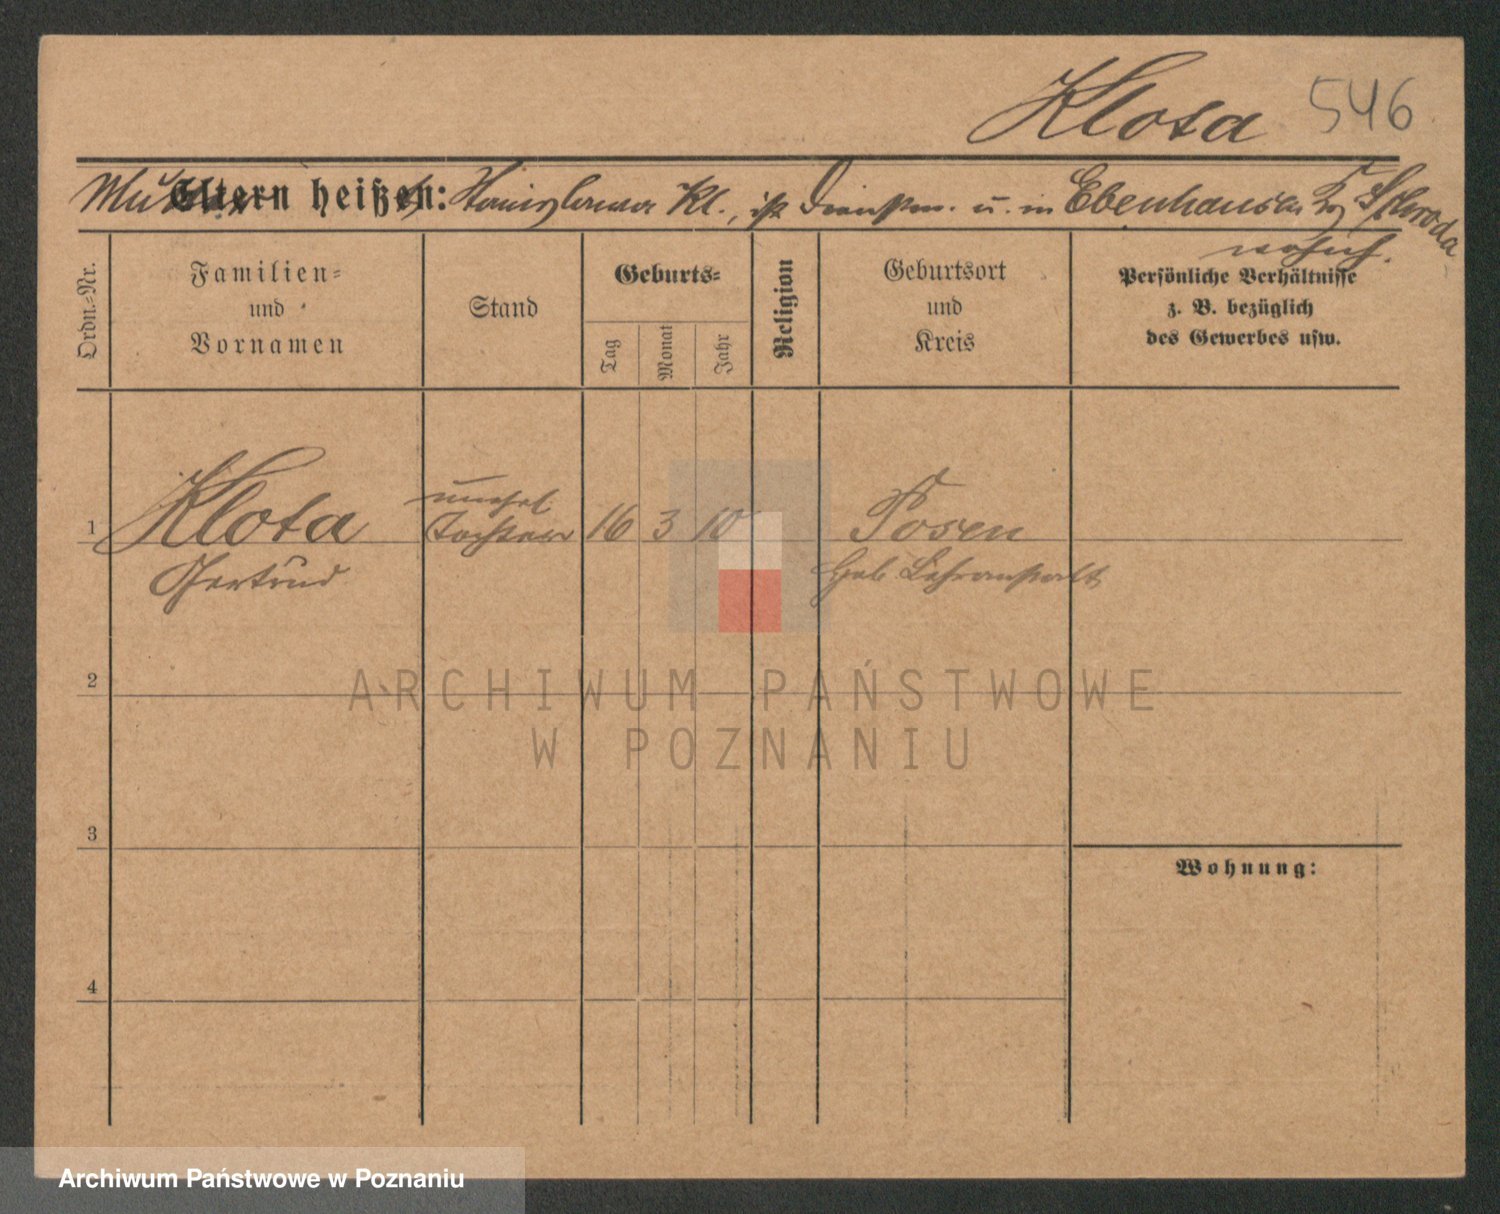 Klota 546
Mutter Eltern heißen: Stanislawa Kl., ist Dienstm. u. in Ebenhausen Kr. Schroda
wohnh.
Ordn.=Nr.
Familien=
und
Vornamen
Stand
Geburts=
Tag
Monat
Jahr
Religion
Geburtsort
und
Kreis
Persönliche Verhältnisse
z. B. bezüglich
des Gewerbes usw.
1 Klota unehel. Tochter 16 3 10 Posen
Gertrud Heb. Lehranstalt
2
3
4
Wohnung:
ARCHIWUM PAŃSTWOWE
W POZNANIU
Archiwum Państwowe w Poznaniu